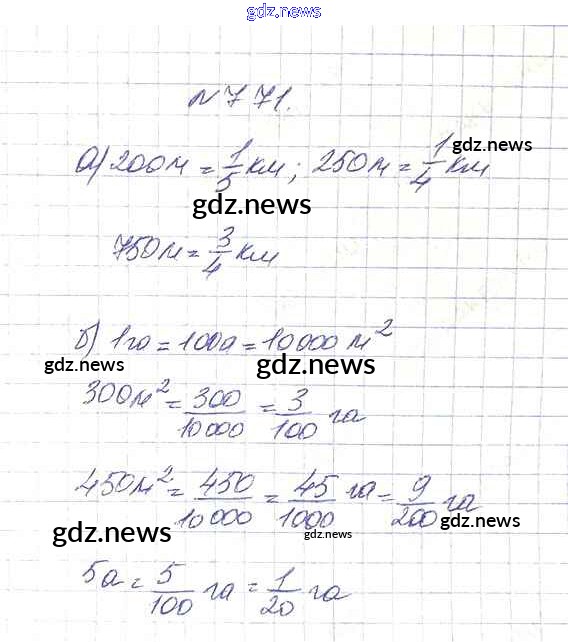 gdz.news
№ 771.
а) 200м = 1/5 км; 250м = 1/4 км
gdz.news
gdz.news
750м = 3/4 км
б) 1га = 100а = 10000 м²
gdz.news
gdz.news
300м² = 300/10000 = 3/100 га
450м² = 450/10000 = 45/1000 га = 9/200 га
gdz.news
gdz.news
gdz.news
5а = 5/100 га = 1/20 га
gdz.news